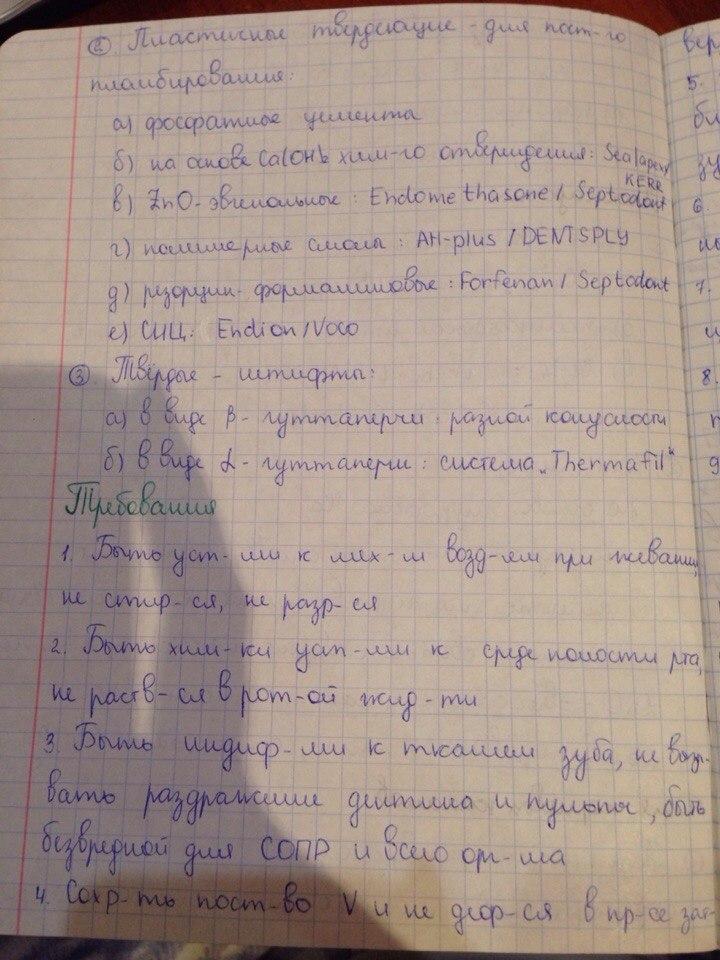 ② Пластичные твердеющие - для пост-го
пломбирования:
а) фосфатные цементы
б) на основе Ca(OH)₂ хим-го отверждения: Sealapex/
KERR
в) ZnO-эвгенольные: Endomethasone / Septodont
г) полимерные смолы: AH-plus / DENTSPLY
д) резорцин-формалиновые: Forfenan / Septodont
е) СИЦ: Endion / Voco
③ Твёрдые - штифты:
а) в виде β-гуттаперчи: разной конусности
б) в виде α-гуттаперчи: система „Thermafil"
Требования
1. Быть уст-ми к мех-м возд-ям при жевании,
не стир-ся, не разр-ся
2. Быть хим-ки уст-ми к среде полости рта,
не раств-ся в рот-ой жид-ти
3. Быть индиф-ми к тканям зуба, не вызы-
вать раздражение дентина и пульпы, быть
безвредной для СОПР и всего орг-ма
4. Сохр-ть пост-во V и не деф-ся в пр-се
вер
5.
бл
зу
6.
7.
8.